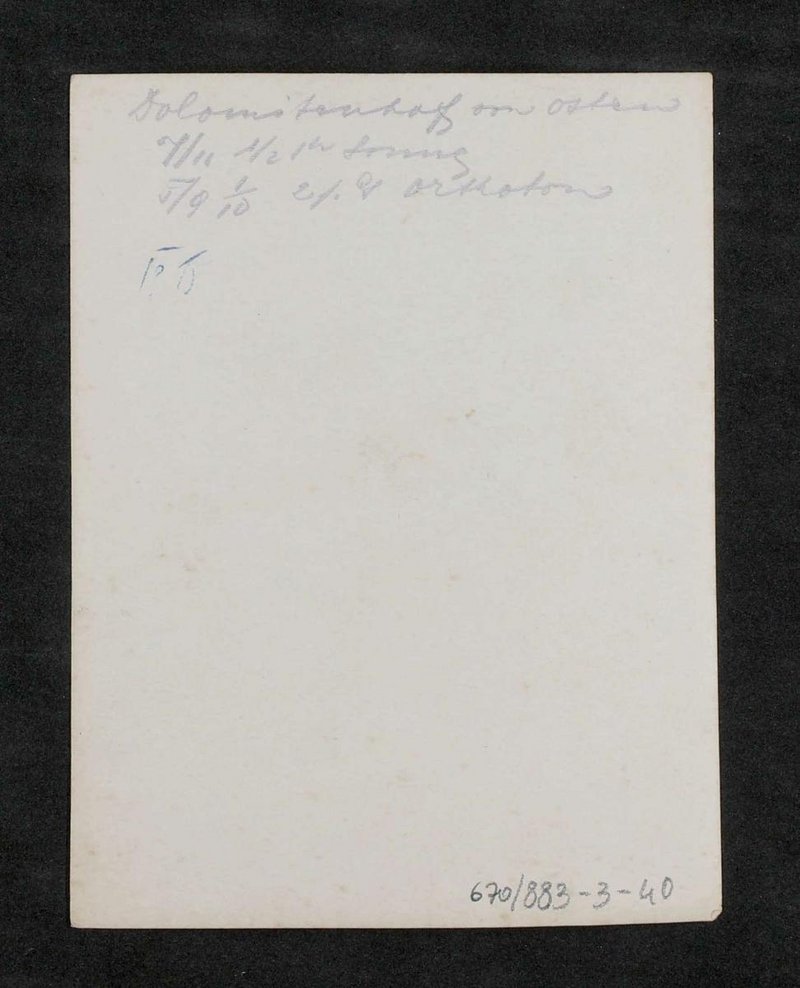 Dolomitenhof von Osten
7/11 1/2 1h sonnig
5/9 1/10 2 f. G Orthoton
670/883-3-40